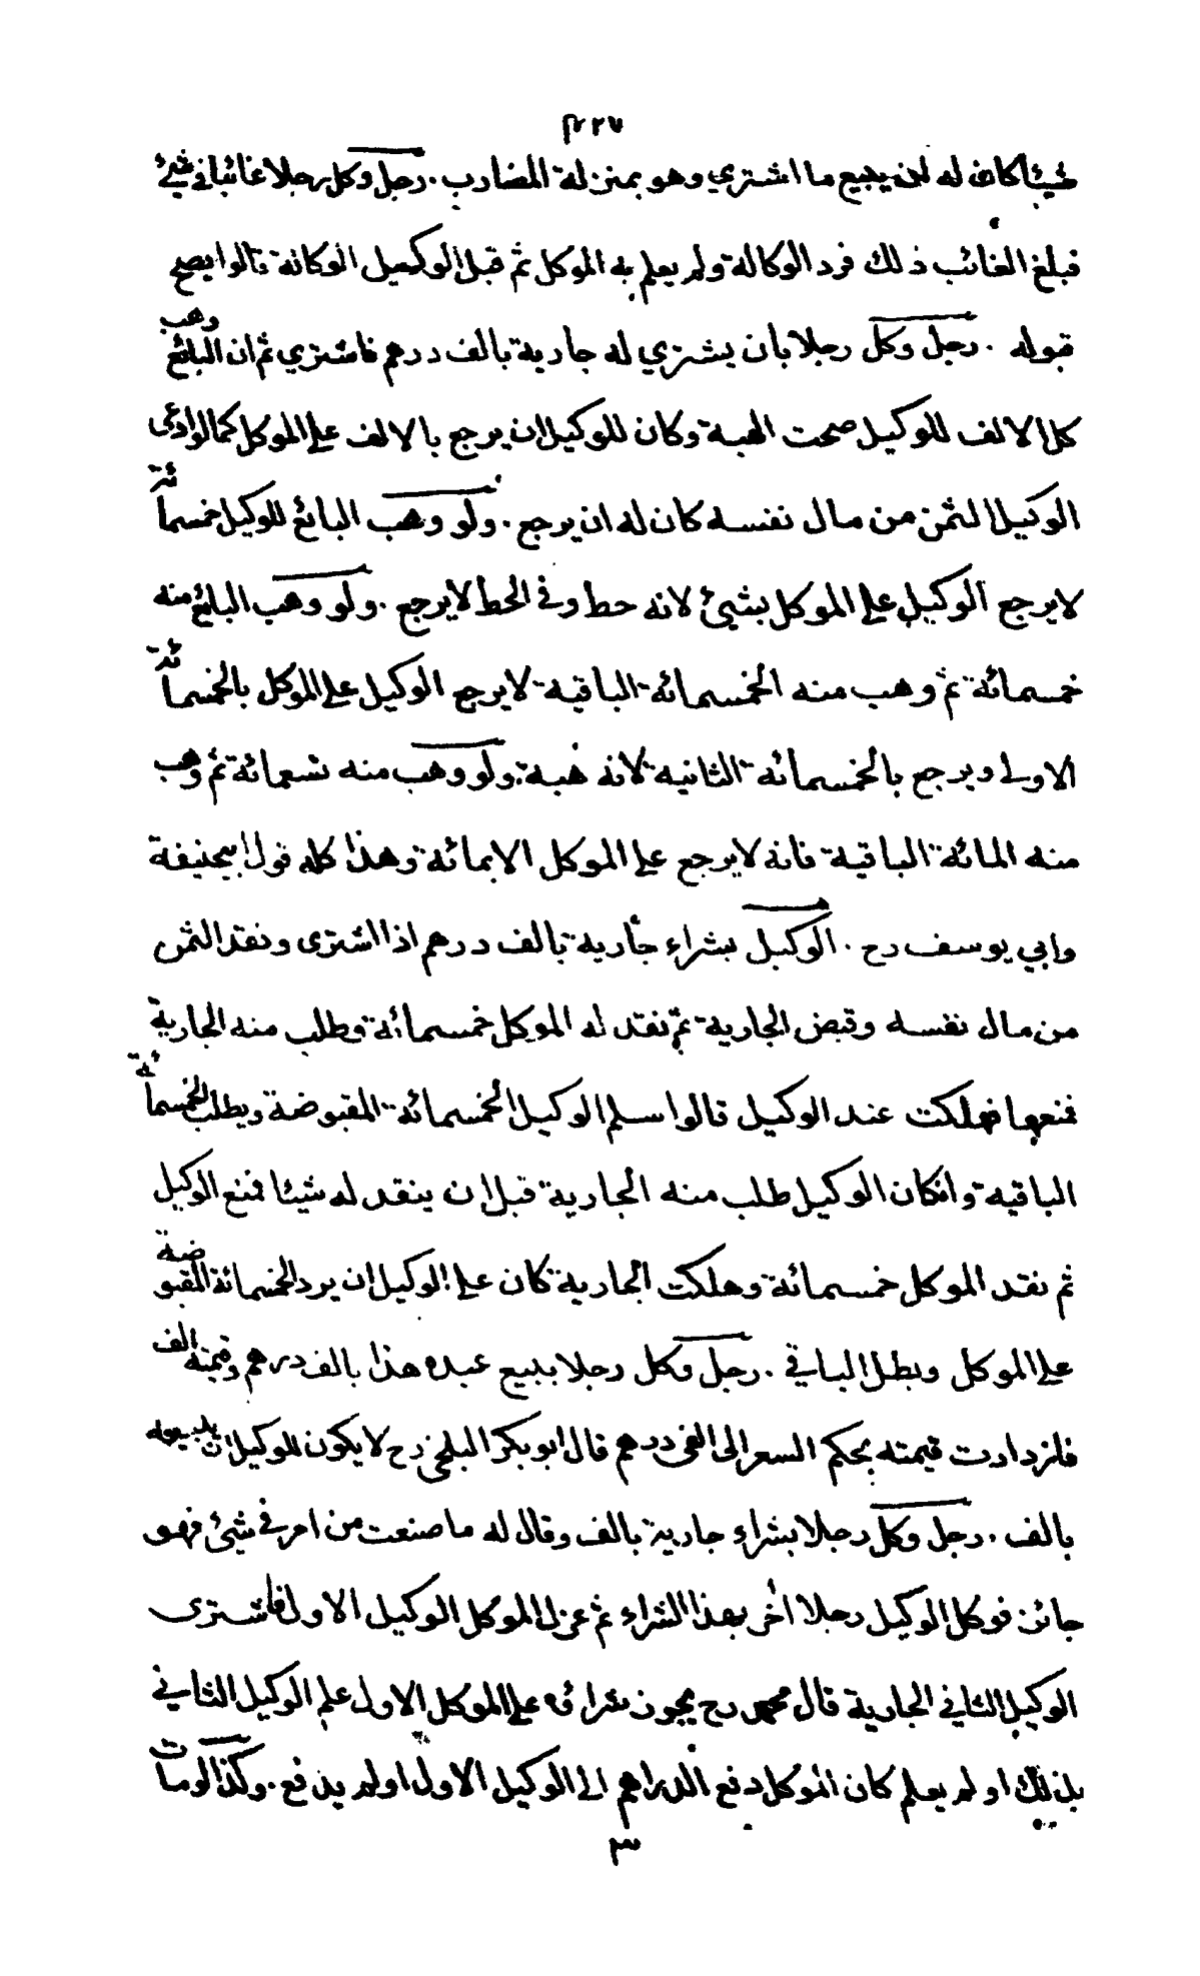 ٢٢٧
شيئا كان له ان يبيع ما اشتري وهو بمنزلة المضارب . رجل وكل رجلا غائبا في شيئ
فبلغ الغائب ذلك فرد الوكالة ولم يعلم به الموكل ثم قبل الوكيل الوكالة قالوا يصح
قبوله . رجل وكل رجلا بان يشتري له جارية بالف درهم فاشتري ثم ان البائع وهب
كل الالف للوكيل صحت الهبة وكان للوكيل ان يرجع بالالف على الموكل كما لو ادى
الوكيل الثمن من مال نفسه كان له ان يرجع . ولو وهب البائع للوكيل خمسمائة
لا يرجع الوكيل على الموكل بشيئ لانه حط وفي الحط لا يرجع . ولو وهب البائع منه
خمسمائة ثم وهب منه الخمسمائة الباقية لا يرجع الوكيل على الموكل بالخمسمائة
الاولى ويرجع بالخمسمائة الثانية لانه هبة . ولو وهب منه تسعمائة ثم وهب
منه المائة الباقية فانه لا يرجع على الموكل الا بمائة وهذا كله قول ابيحنيفة
وابي يوسف رح . الوكيل بشراء جارية بالف درهم اذا اشترى ونقد الثمن
من مال نفسه وقبض الجارية ثم نقد له الموكل خمسمائة وطلب منه الجارية
فمنعها فهلكت عند الوكيل قالوا سلم الوكيل الخمسمائة المقبوضة ويطلب الخمسمائة
الباقية وان كان الوكيل طلب منه الجارية قبل ان ينقد له شيئا فمنع الوكيل
ثم نقد الموكل خمسمائة وهلكت الجارية كان على الوكيل ان يرد الخمسمائة المقبوضة
على الموكل وبطل الباقي . رجل وكل رجلا ببيع عبده هذا بالف درهم وقيمته الف
فازدادت قيمته بحكم السعر الى الفى درهم قال ابو بكر البلخي رح لا يكون للوكيل ان يبيعه
بالف . رجل وكل رجلا بشراء جارية بالف وقال له ما صنعت من امر في شيئ فهو
جائز فوكل الوكيل رجلا اخر بهذا الشراء ثم عزل الموكل الوكيل الاول فاشترى
الوكيل الثاني الجارية قال محمد رح يجوز شراؤه على الموكل الاول علم الوكيل الثاني
بذلك او لم يعلم كان الموكل دفع الدراهم الى الوكيل الاول او لم يدفع . وكذا لو مات
٣